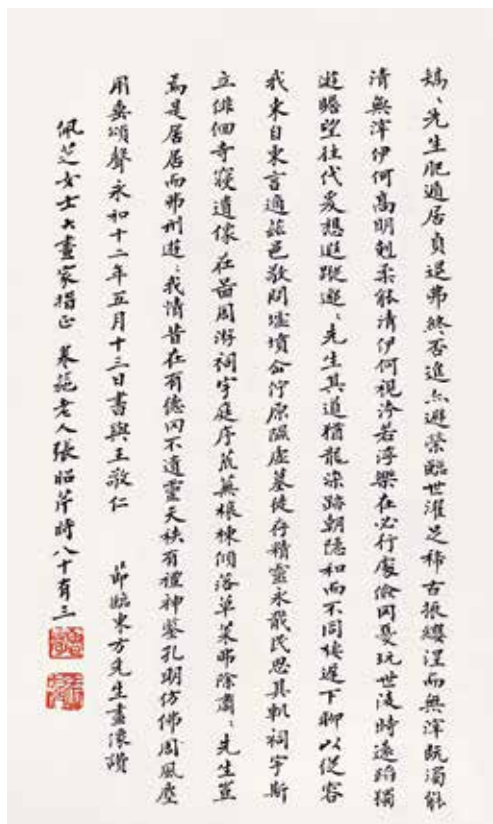 矯〻先生肥遁居貞退弗終否進亦避榮臨世濯足稀古振纓涅而無滓既濁能
清無滓伊何高明剋柔能清伊何視汙若浮樂在必行處儉罔憂玩世淩時遠蹈獨
遊瞻望往代爰想遐蹤邈〻先生其道猶龍染跡朝隱和而不同棲遲下聊以從容
我來自東言適茲邑敬問墟墳企佇原隰虛墓徒存精靈永戢民思其軌祠宇斯
立俳佪寺寢遺像在啚周游祠宇庭序荒蕪榱棟傾落草萊弗除肅〻先生豈
焉是居居而弗刑遊〻我情昔在有德罔不遺靈天秩有禮神鑒孔明仿佛周風塵
用垂頌聲永和十二年五月十三日書與王敬仁 節臨東方先生畫像讚
佩芝女士大畫家指正 老人張昭芹時八十有三